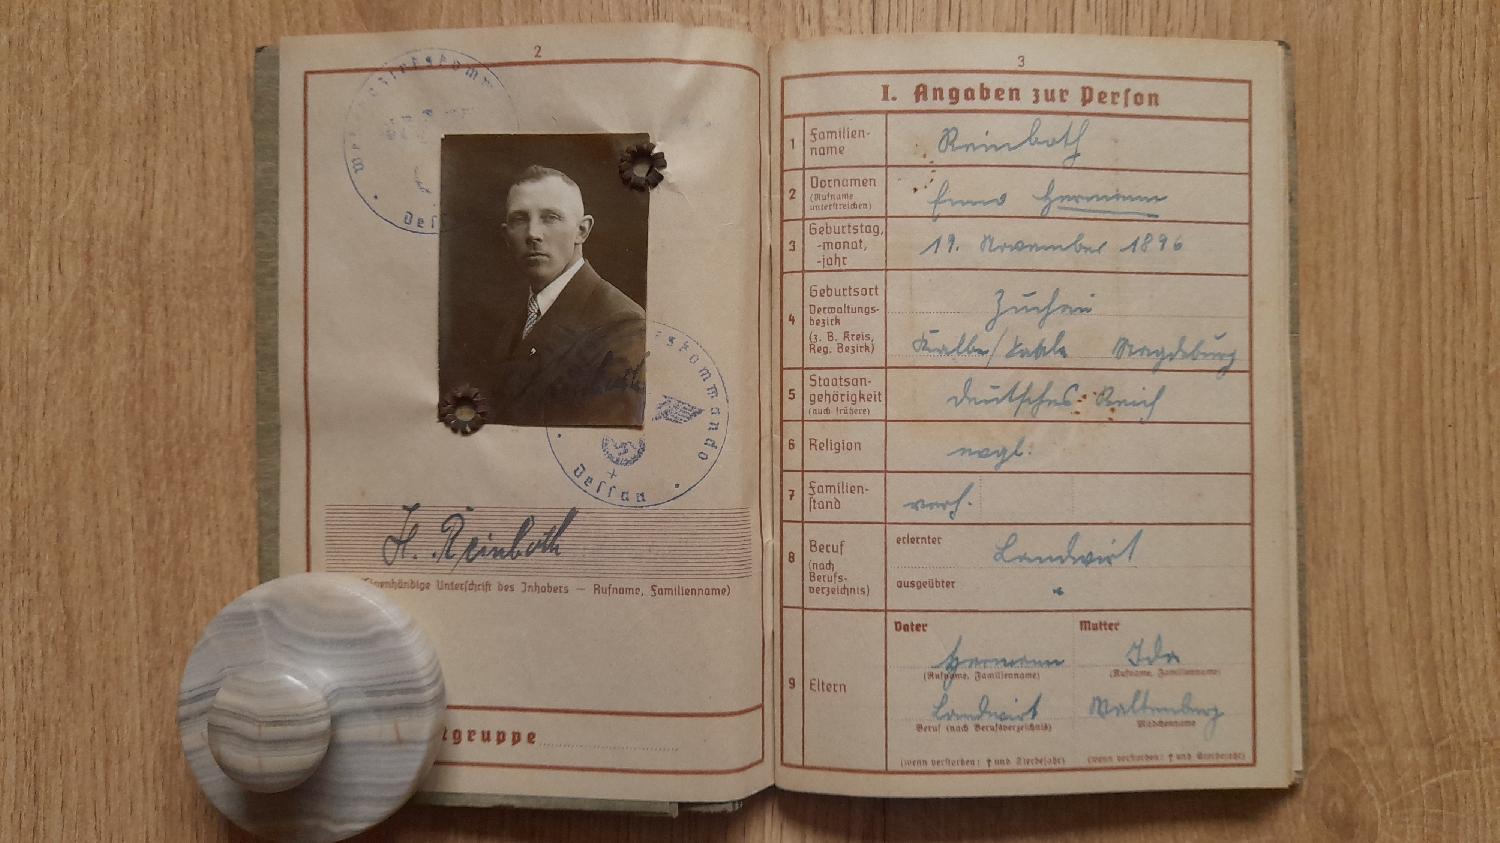 2
Dessau
skommando
Dessau
H. Reinboth
(Eigenhändige Unterschrift des Inhabers — Rufname, Familienname)
gruppe
3
I. Angaben zur Person
1 Familien-
name
Reinboth
2 Vornamen
(Rufname
unterstreichen)
Enno Hermann
3 Geburtstag,
-monat,
-jahr
19. November 1896
4 Geburtsort
Verwaltungs-
bezirk
(z. B. Kreis,
Reg. Bezirk)
Zuchau
Kalbe/Saale Magdeburg
5 Staatsan-
gehörigkeit
(auch frühere)
Deutsches Reich
6 Religion
evgl.
7 Familien-
stand
verh.
8 Beruf
(nach
Berufs-
verzeichnis)
erlernter
Landwirt
ausgeübter
"
9 Eltern
Vater
Hermann
(Rufname, Familienname)
Landwirt
Beruf (nach Berufsverzeichnis)
(wenn verstorben: † und Sterbejahr)
Mutter
Ida
(Rufname, Familienname)
Mädchenname
(wenn verstorben: † und Sterbejahr)